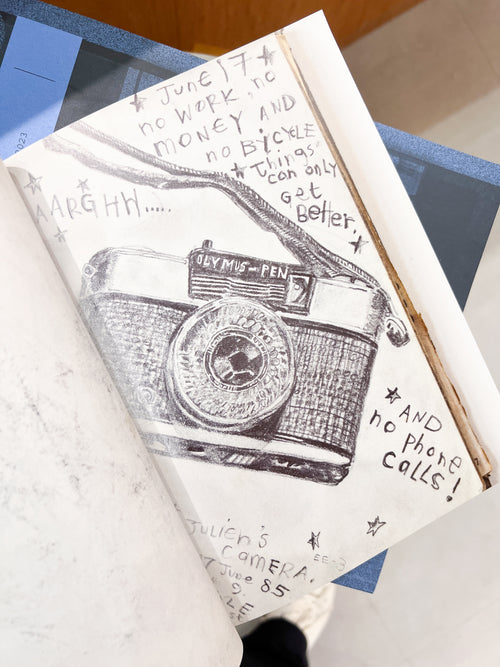 2023
JUNE 17
no WORK, no
MONEY AND
no BiCYCLE
Things
can only
Get
Better.
AARGHH.....
OLYMUS-PEN
AND
no Phone
CALLS!
JULIEN'S
CAMERA.
7 June 85
9.
LE